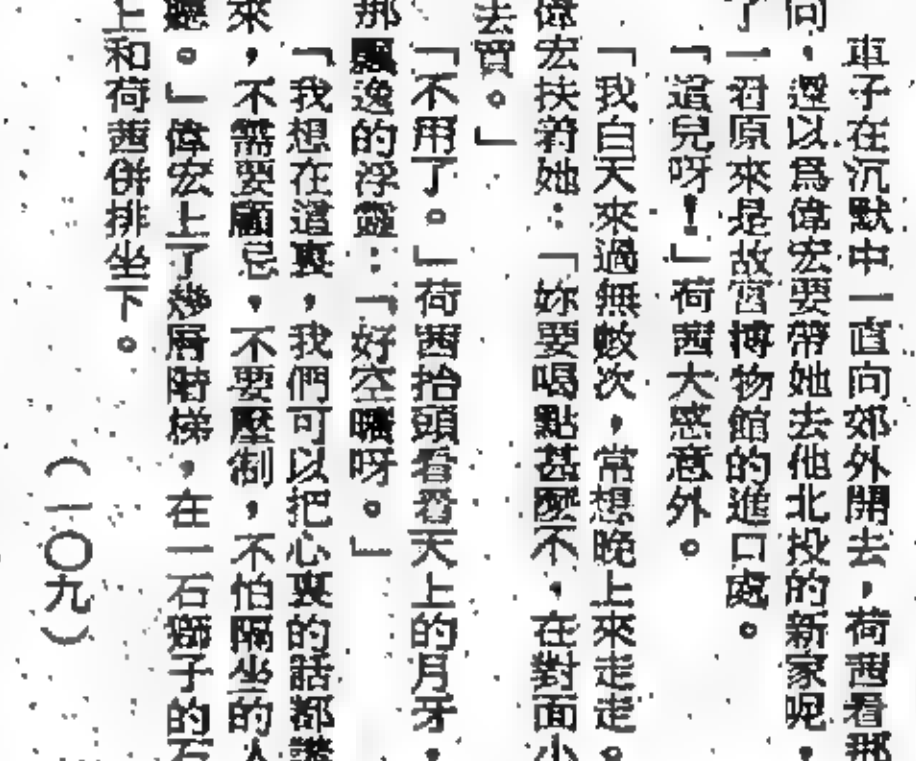 車子在沉默中一直向郊外開去，荷茜看那
向，還以爲偉宏要帶她去他北投的新家呢，
了一君原來是故宮博物館的進口處。
「這兒呀！」荷茜大感意外。
「我白天來過無數次，常想晚上來走走。
偉宏扶着她：「妳要喝點甚麼不，在對面小
去買。」
「不用了。」荷茜抬頭看看天上的月牙，
那飄逸的浮靈：「好空曠呀。」
「我想在這裏，我們可以把心裏的話都講
來，不需要顧忌，不要壓制，不怕隔坐的人
聽。」偉宏上了幾層階梯，在一石獅子的石
上和荷茜併排坐下。
（一〇九）